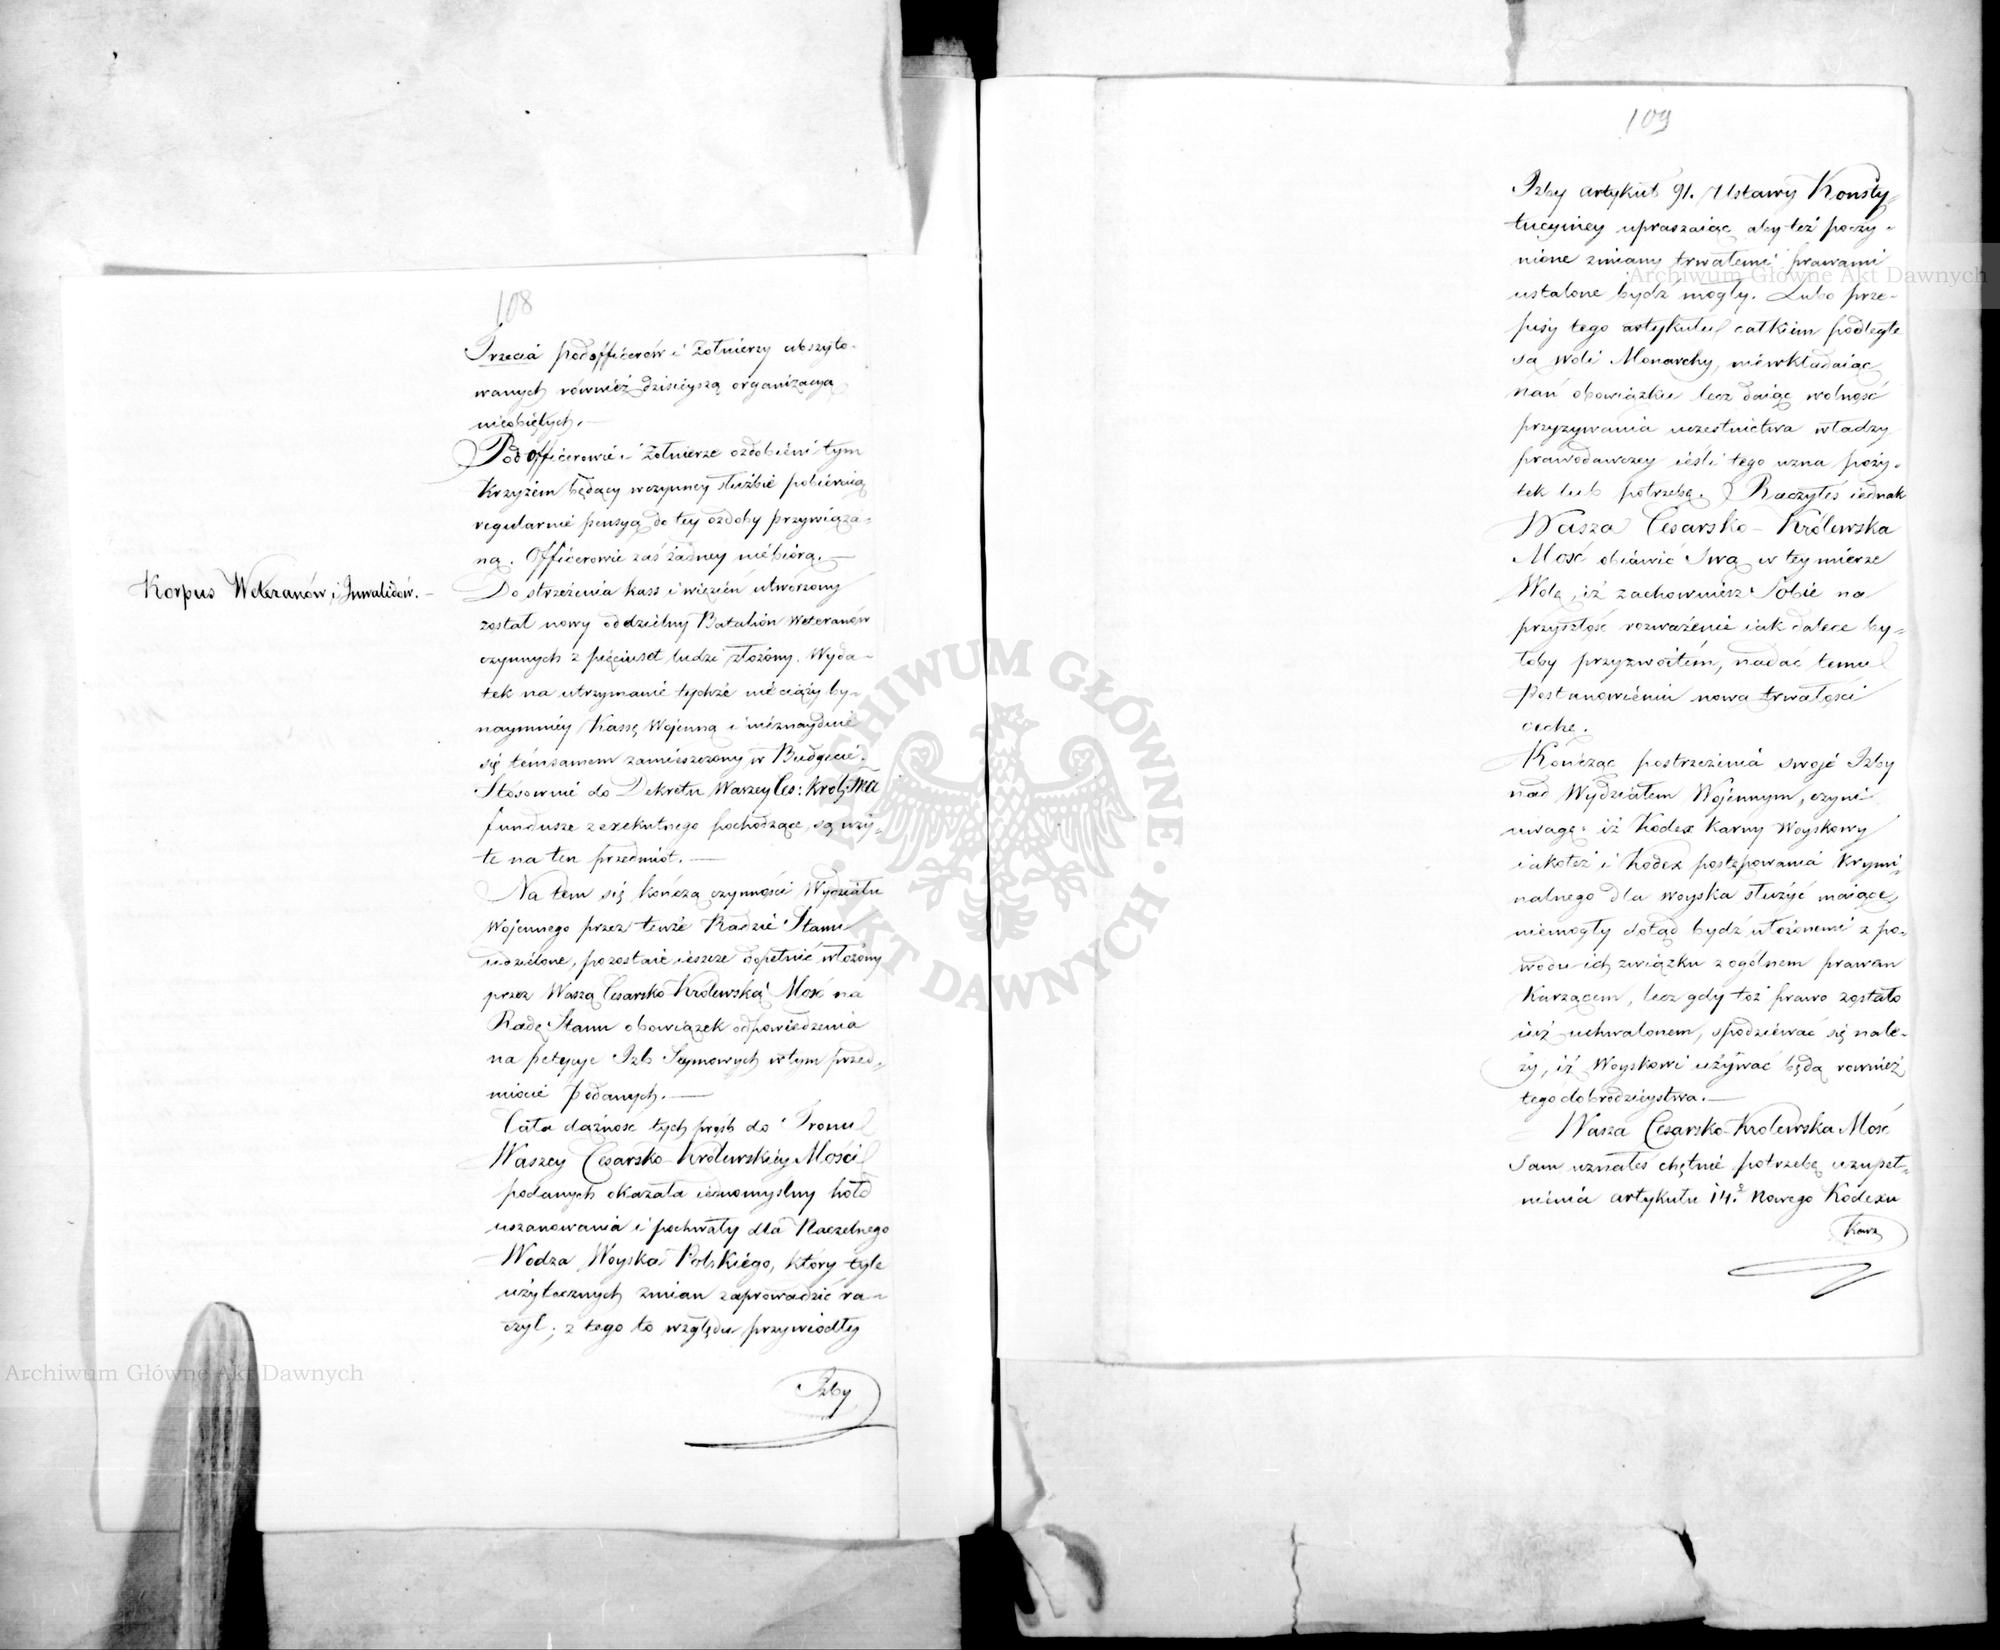 108
Trzecia podofficerów i Żołnierzy abszyto-
wanych również dzisieyszą organizacyą
nieobiętych. —
Podofficerowie i Żołnierze ozdobieni tym
Krzyżem będący w czynney służbie pobieraią
regularnie pensyą do tey ozdoby przywiąza-
ną. Officerowie zaś żadney niebiorą. —
Korpus Weteranów i Inwalidów. —
Do strzeżenia kass i więzień utworzony
został nowy oddzielny Batalion Weteranów
czynnych z pięciuset ludzi złożony. Wyda-
tek na utrzymanie tychże nie ciąży by-
naymniey Kassę Wojenną i nieznayduie
się temsamem zamieszczony w Budgecie.
Stósownie do Dekretu Waszey Ces: Król: Mci
fundusze z exekutnego pochodzące, są uży-
te na ten przedmiot. —
Na tem się kończą czynności Wydziału
Wojennego przez tenże Radzie Stanu
udzielone, pozostaie ieszcze dopełnić włożony
przez Waszą Cesarsko-Królewską Mość na
Radę Stanu obowiązek odpowiedzenia
na petycye Izb Seymowych w tym przed-
miocie podanych. —
Cała dążność tych próśb do Tronu
Waszey Cesarsko-Królewskiey Mości
podanych okazała iednomyślny hołd
uszanowania i pochwały dla Naczelnego
Wodza Woyska Polskiego, który tyle
użytecznych zmian zaprowadzić ra-
czył; z tego to względu przywiodły
Izby
109
Izby artykuł 91. Ustawy Konsty-
tucyiney upraszaiąc aby też poczy-
nione zmiany trwałemi prawami
ustalone bydź mogły. Lubo prze-
pisy tego artykułu całkiem podległe
są woli Monarchy, niewkładaiąc
nań obowiązku lecz daiąc wolność
przyzywania uczestnictwa władzy
prawodawczey ieśli tego uzna poży-
tek lub potrzebę. Raczyłeś iednak
Wasza Cesarsko-Królewska
Mość obiawić Swą w tey mierze
Wolą, iż zachowuiesz Sobie na
przyszłość rozważenie iak dalece by-
łoby przyzwoitem, nadać temu
Postanowieniu nową trwałości
cechę.
Kończąc postrzeżenia swoje Izby
nad Wydziałem Wojennym, czyni
uwagę: iż Kodex Karny Woyskowy
iakoteż i Kodex postępowania Krymi-
nalnego dla woyska służyć maiące,
niemogły dotąd bydź ułożonemi z po-
wodu ich związku z ogólnem prawem
Karzącem, lecz gdy toż prawo zostało
iuż uchwalonem, spodziewać się nale-
ży, iż Woyskowi używać będą również
tego dobrodzieystwa. —
Wasza Cesarsko-Królewska Mość
Sam uznałeś chętnie potrzebę uzupeł-
nienia artykułu 14. Nowego Kodexu
Karz
Archiwum Główne Akt Dawnych
Archiwum Główne Akt Dawnych
ARCHIWUM GŁÓWNE · AKT DAWNYCH ·